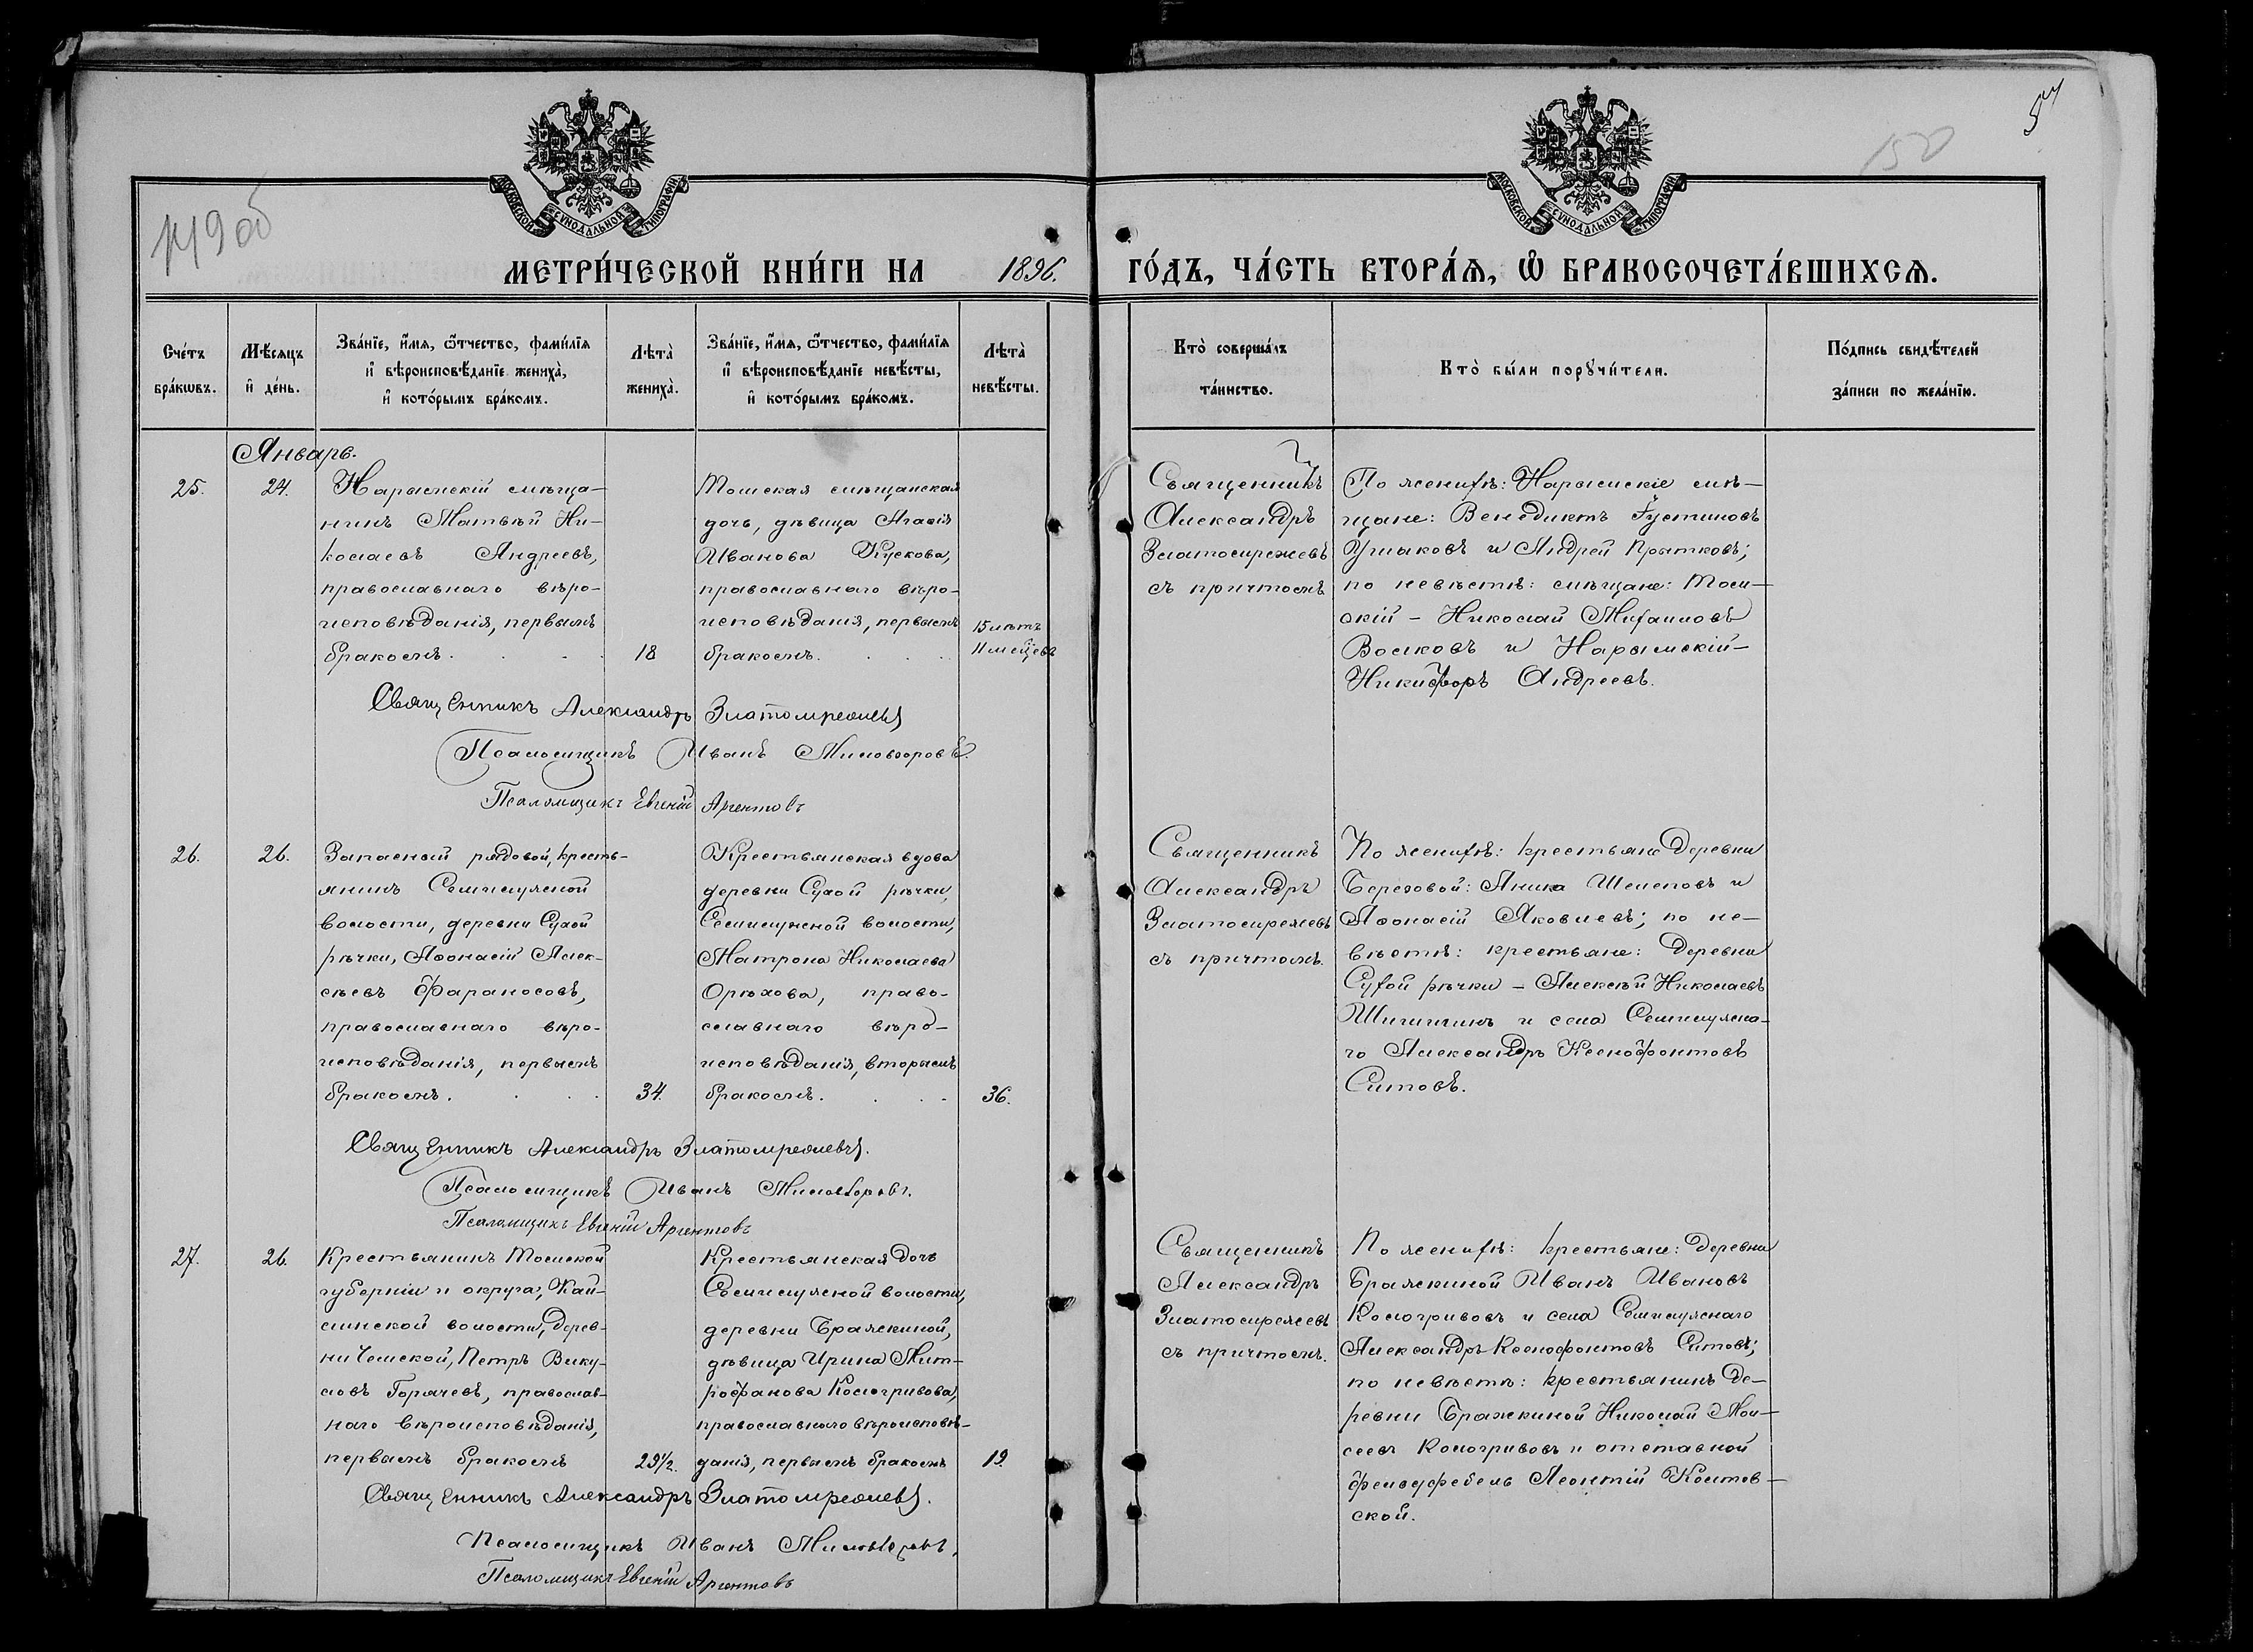 149 об
150
57
МОСКОВСКОЙ СУНОДАЛЬНОЙ ТИПОГРАФІИ
МОСКОВСКОЙ СУНОДАЛЬНОЙ ТИПОГРАФІИ
МЕТРИ́ЧЕСКОЙ КНИ́ГИ НА 1896. ГО́ДЪ, ЧА́СТЬ ВТОРА́Ѧ, Ѡ҆ БРАКОСОЧЕТА́ВШИХСѦ.
Сче́тъ бра́кѡвъ.
Мѣ́сѧцъ и҆ де́нь.
Зва́нїе, и҆́мѧ, ѻ҆́тчество, фами́лїѧ
и҆ вѣроисповѣ́данїе жениха̀,
и҆ кото́рымъ бра́комъ.
Лѣта̀ жениха̀.
Зва́нїе, и҆́мѧ, ѻ҆́тчество, фами́лїѧ
и҆ вѣроисповѣ́данїе невѣ́сты,
и҆ кото́рымъ бра́комъ.
Лѣта̀ невѣ́сты.
Кто̀ соверша́лъ
та́инство.
Кто̀ бы́ли порꙋчи́тели.
По́дпись свидѣ́телей
за́писи по жела́нїю.
Январь.
25.
24.
Нарымскій мѣща-
нинъ Матвѣй Ни-
колаевъ Андреевъ,
православнаго вѣро-
исповѣданія, первымъ
бракомъ.
18
Томская мѣщанская
дочь, дѣвица Агаѳія
Иванова Кускова,
православнаго вѣро-
исповѣданія, первымъ
бракомъ.
15 лѣтъ
11 мѣсцевъ
Священникъ
Александръ
Златомрежевъ
съ причтомъ
По женихѣ: Нарымскіе мѣ-
щане: Венедиктъ Густиновъ
Ушаковъ и Андрей Прытковъ;
по невѣстѣ: мѣщане: Том-
скій - Николай Михаиловъ
Волковъ и Нарымскій-
Никифоръ Андреевъ.
Священникъ Александръ Златомрежевъ
Псаломщикъ Иванъ Миловзоровъ.
Псаломщикъ Евгеній Аргентовъ
26.
26.
Запасный рядовой, кресть-
янинъ Семилужной
волости, деревни Сухой
рѣчки, Аѳонасій Алек-
сѣевъ Фараносовъ,
православнаго вѣро-
исповѣданія, первымъ
бракомъ.
34.
Крестьянская вдова
деревни Сухой рѣчки,
Семилужной волости,
Матрона Николаева
Орѣхова, право-
славнаго вѣро-
исповѣданія, вторымъ
бракомъ.
36.
Священникъ
Александръ
Златомрежевъ
съ причтомъ.
По женихѣ: крестьяне деревни
Березовой: Аника Шелеповъ и
Аѳонасій Яковлевъ; по не-
вѣстѣ: крестьяне: деревни
Сухой рѣчки - Алексѣй Николаевъ
Шишигинъ и села Семилужна-
го Александръ Ксенофонтовъ
Ситовъ.
Священникъ Александръ Златомрежевъ.
Псаломщикъ Иванъ Миловзоровъ.
Псаломщикъ Евгеній Аргентовъ
27.
26.
Крестьянинъ Томской
губерніи и округа, Кай-
линской волости, дерев-
ни Чемской, Петръ Вику-
ловъ Горячевъ, православ-
наго вѣроисповѣданія,
первымъ бракомъ
29½.
Крестьянская дочь
Семилужной волости,
деревни Бражкиной,
дѣвица Ирина Мит-
рофанова Кологривова,
православнаго вѣроисповѣ-
данія, первымъ бракомъ
19.
Священникъ
Александръ
Златомрежевъ
съ причтомъ.
По женихѣ: крестьяне: деревни
Бражкиной Иванъ Ивановъ
Кологривовъ и села Семилужнаго
Александръ Ксенофонтовъ Ситовъ;
по невѣстѣ: крестьянинъ де-
ревни Бражкиной Николай Мои-
сеевъ Кологривовъ и отставной
фельдфебель Леонтій Колтов-
ской.
Священникъ Александръ Златомрежевъ.
Псаломщикъ Иванъ Миловзоровъ.
Псаломщикъ Евгеній Аргентовъ